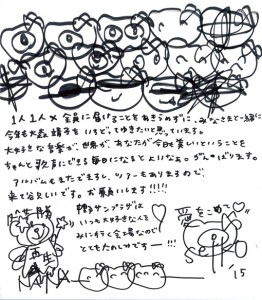 1人1人×全員に届けることをあきらめずに、みなさまと一緒に
今年も大森靖子をいろどってゆきたいと思っています。
大好きな音楽が、世界が、あなたが今日も美しいということを
ちゃんと歌声にできる毎日になるとよいなぁ。がんばります。
アルバムもまたでますし、ツアーもありますので
来て欲しいです。お願いします!!!!!
中野サンプラザは
いつも大好きなんと
みに行く会場なので
とてもたのしみです——!!!
愛をこめて♡
再生
'15